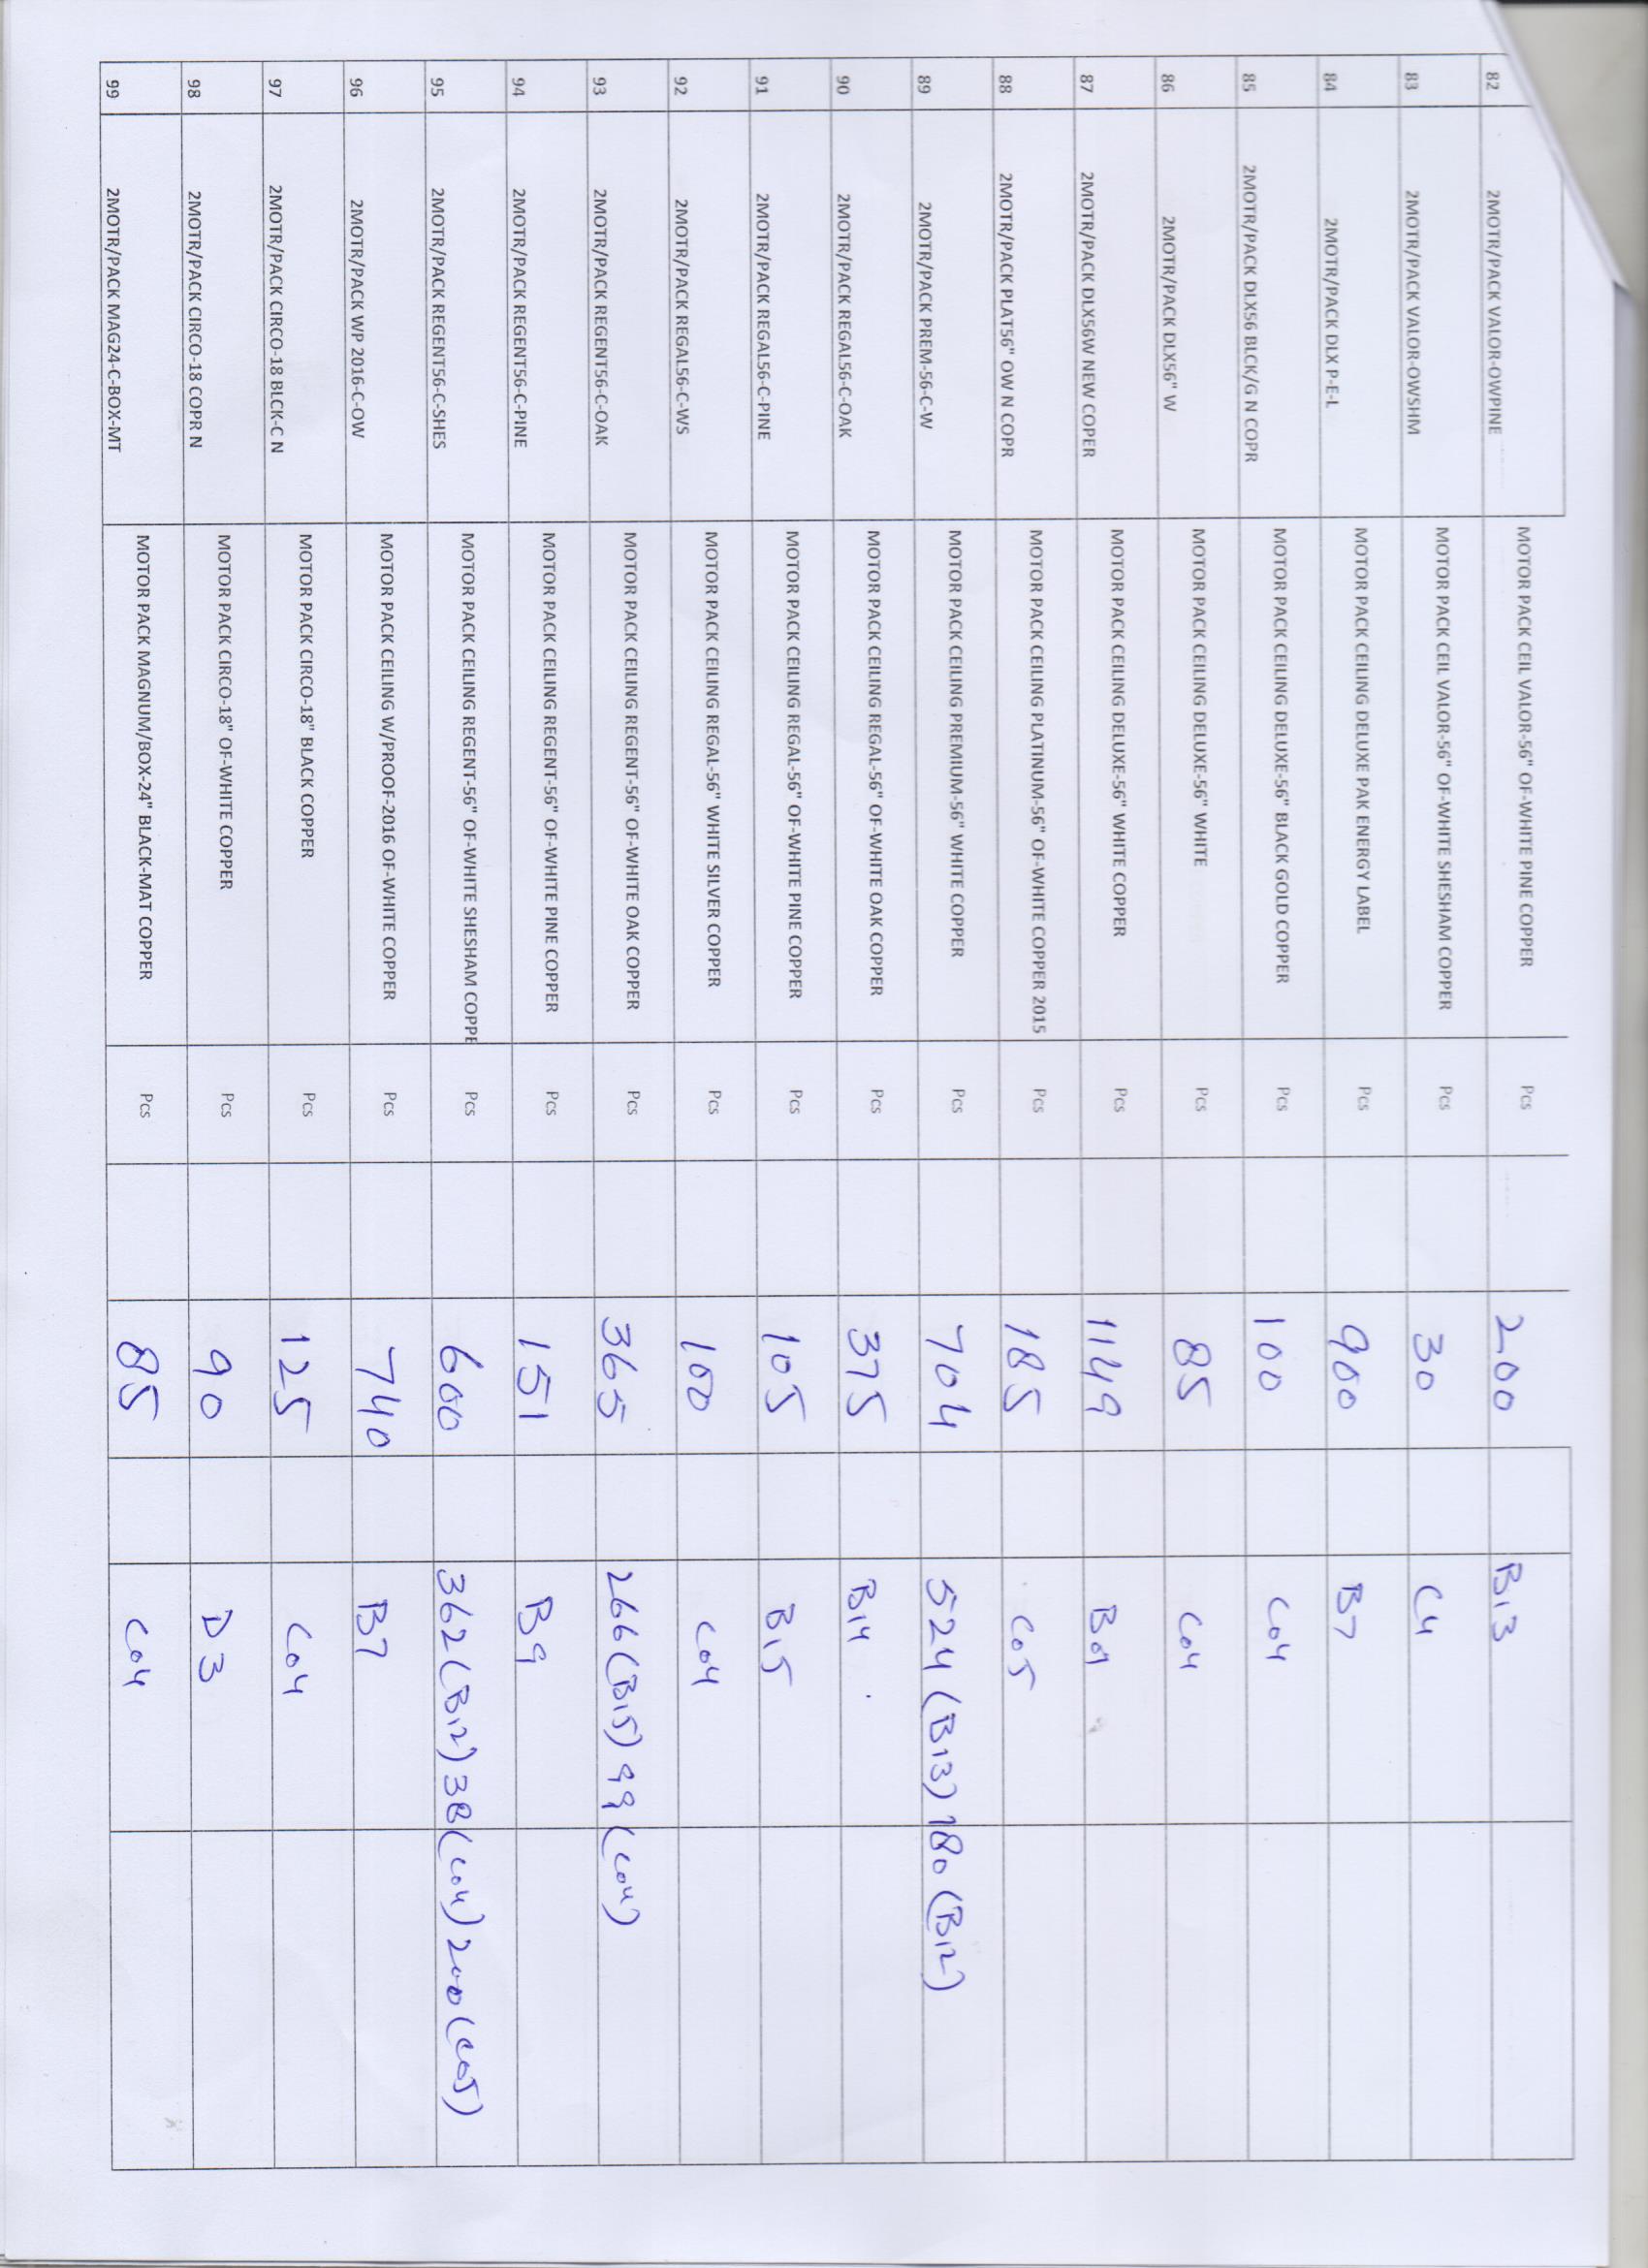 82 2MOTR/PACK VALOR-OWPINE MOTOR PACK CEIL VALOR-56" OF-WHITE PINE COPPER Pcs 200 B13
83 2MOTR/PACK VALOR-OWSHM MOTOR PACK CEIL VALOR-56" OF-WHITE SHESHAM COPPER Pcs 30 C4
84 2MOTR/PACK DLX P-E-L MOTOR PACK CEILING DELUXE PAK ENERGY LABEL Pcs 900 B7
85 2MOTR/PACK DLX56 BLCK/G N COPR MOTOR PACK CEILING DELUXE-56" BLACK GOLD COPPER Pcs 100 C04
86 2MOTR/PACK DLX56" W MOTOR PACK CEILING DELUXE-56" WHITE Pcs 85 C04
87 2MOTR/PACK DLX56W NEW COPER MOTOR PACK CEILING DELUXE-56" WHITE COPPER Pcs 1149
88 2MOTR/PACK PLAT56" OW N COPR MOTOR PACK CEILING PLATINUM-56" OF-WHITE COPPER 2015 Pcs 185 C05
89 2MOTR/PACK PREM-56-C-W MOTOR PACK CEILING PREMIUM-56" WHITE COPPER Pcs 704 524 (B13) 180 (B12)
90 2MOTR/PACK REGAL56-C-OAK MOTOR PACK CEILING REGAL-56" OF-WHITE OAK COPPER Pcs 375 B14
91 2MOTR/PACK REGAL56-C-PINE MOTOR PACK CEILING REGAL-56" OF-WHITE PINE COPPER Pcs 105 B15
92 2MOTR/PACK REGAL56-C-WS MOTOR PACK CEILING REGAL-56" WHITE SILVER COPPER Pcs 100 C04
93 2MOTR/PACK REGENT56-C-OAK MOTOR PACK CEILING REGENT-56" OF-WHITE OAK COPPER Pcs 365 266 (B15) 99 (C04)
94 2MOTR/PACK REGENT56-C-PINE MOTOR PACK CEILING REGENT-56" OF-WHITE PINE COPPER Pcs 151 B9
95 2MOTR/PACK REGENT56-C-SHES MOTOR PACK CEILING REGENT-56" OF-WHITE SHESHAM COPPE Pcs 600 362 (B12) 38 (C04) 200 (C05)
96 2MOTR/PACK WP 2016-C-OW MOTOR PACK CEILING W/PROOF-2016 OF-WHITE COPPER Pcs 740 B7
97 2MOTR/PACK CIRCO-18 BLCK-C N MOTOR PACK CIRCO-18" BLACK COPPER Pcs 125 C04
98 2MOTR/PACK CIRCO-18 COPR N MOTOR PACK CIRCO-18" OF-WHITE COPPER Pcs 90 D3
99 2MOTR/PACK MAG24-C-BOX-MT MOTOR PACK MAGNUM/BOX-24" BLACK-MAT COPPER Pcs 85 C04